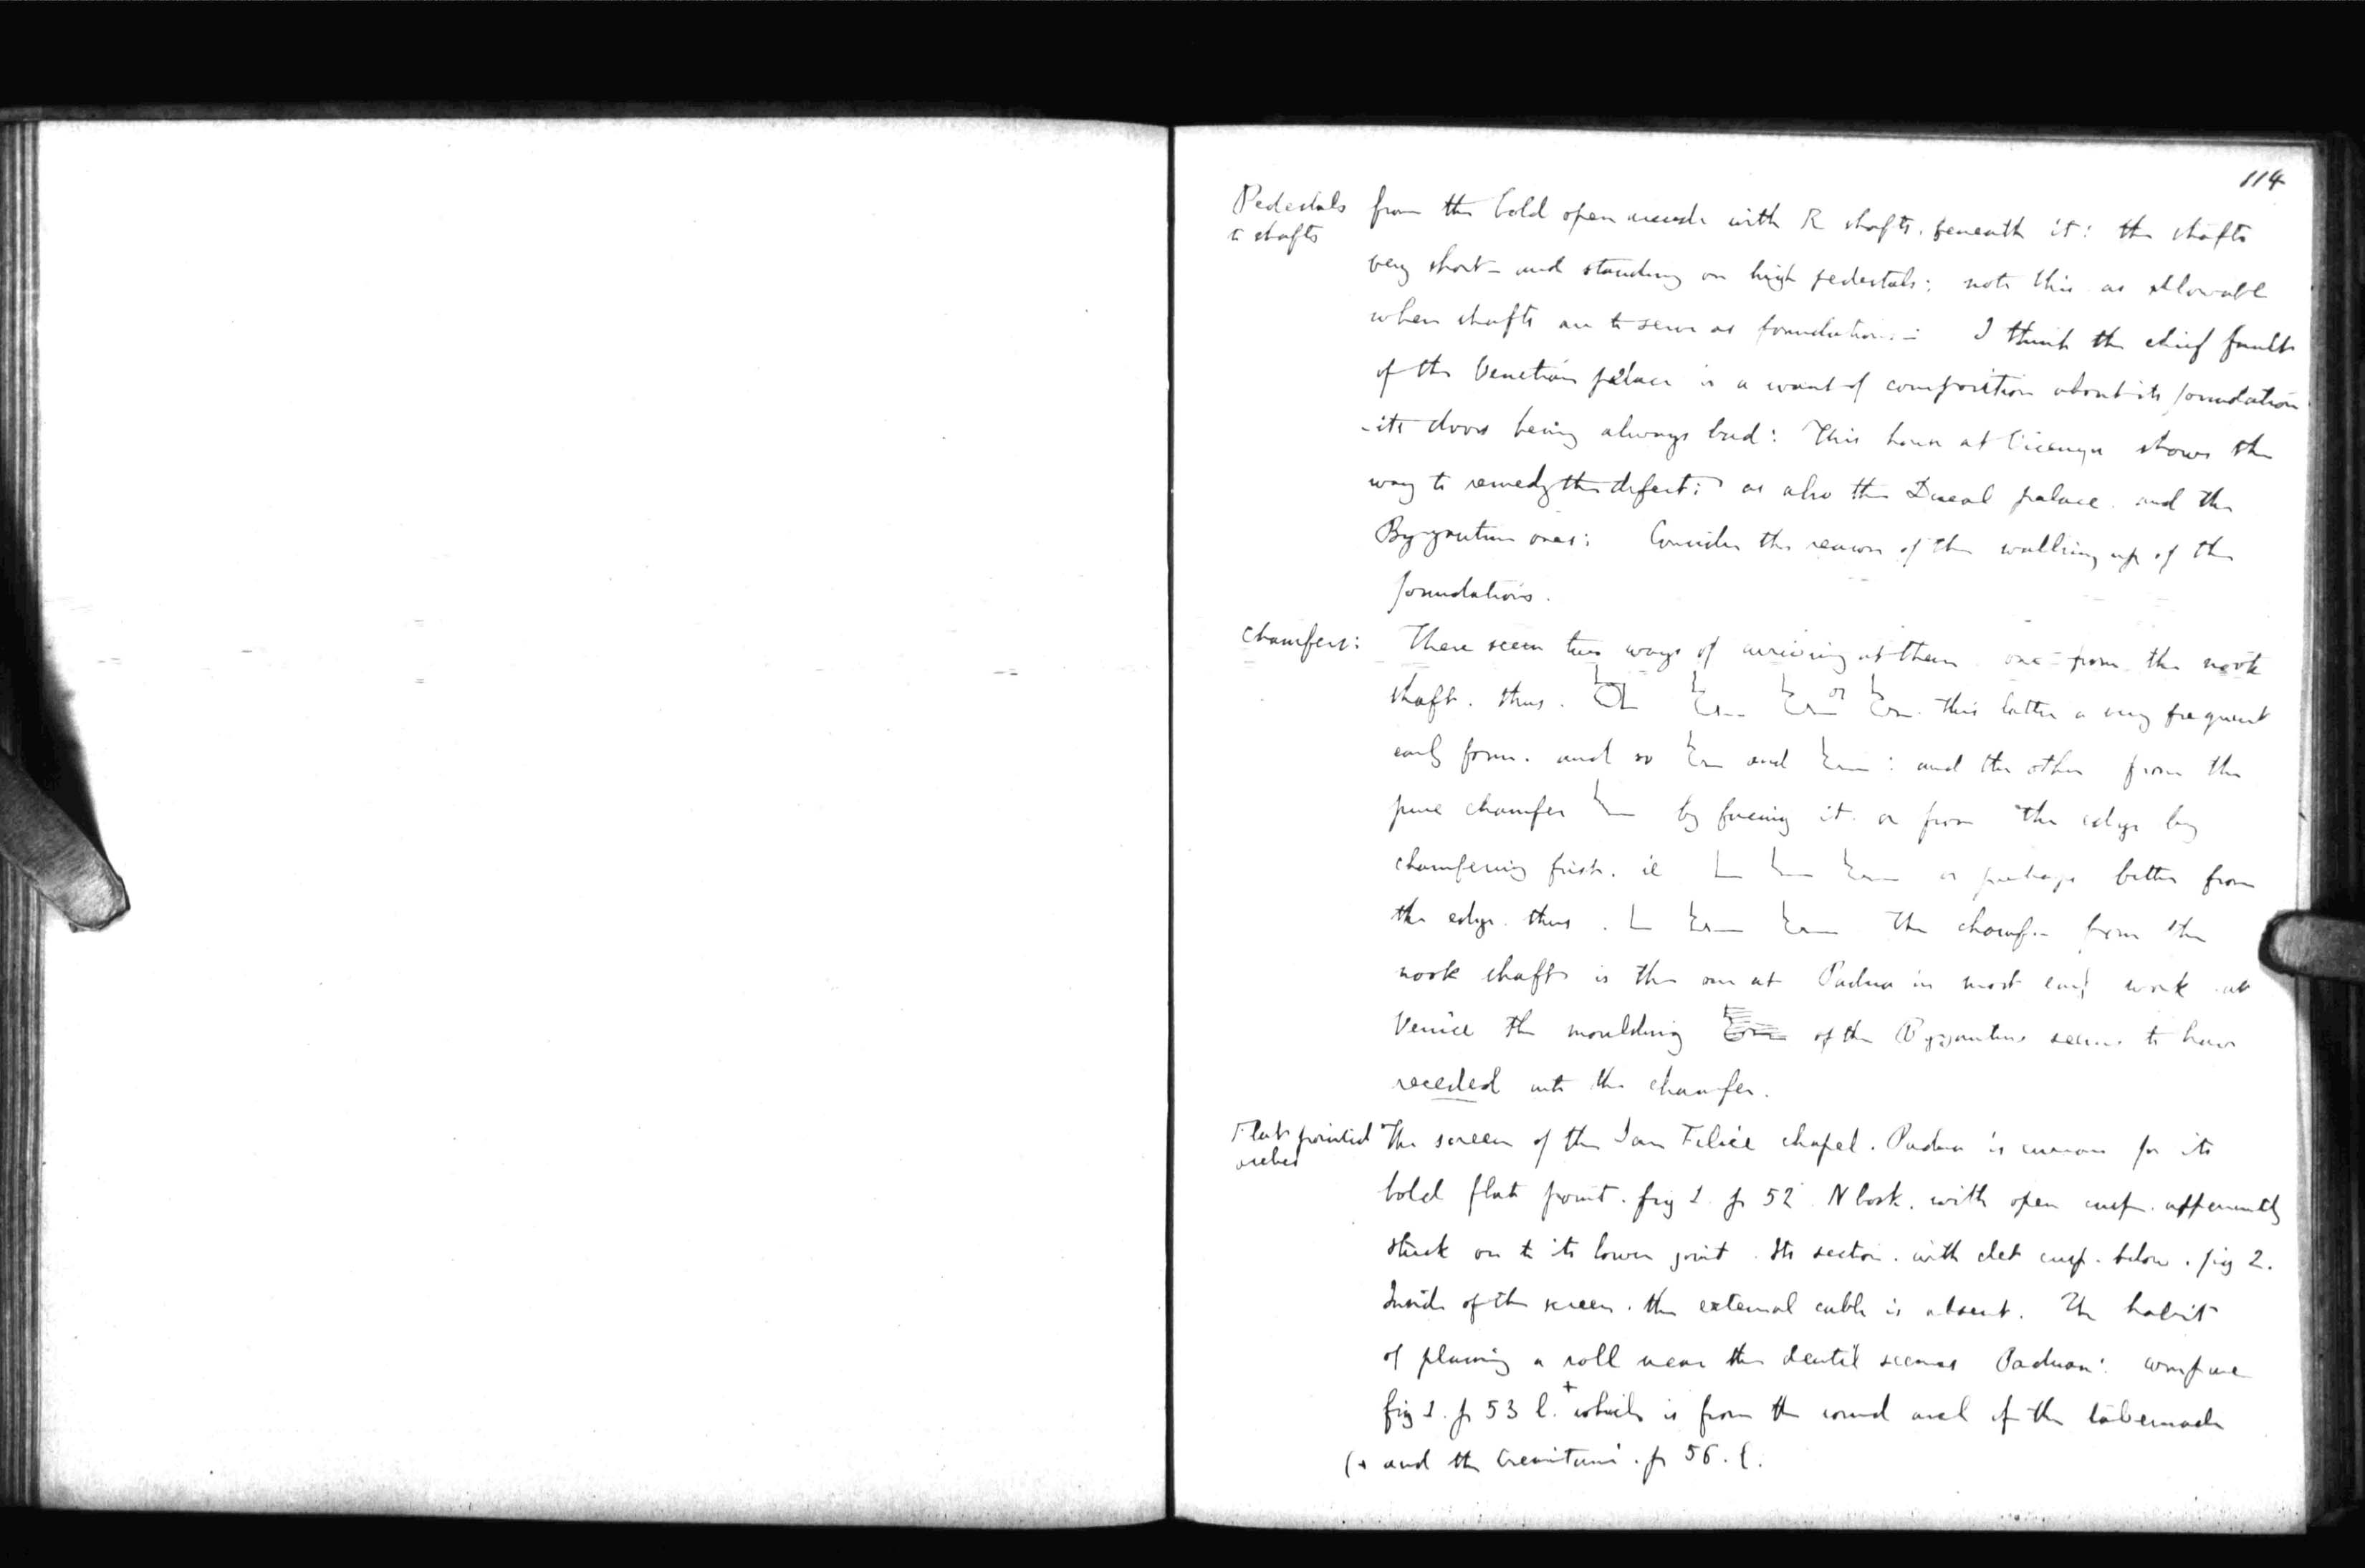 114
Pedestals
to shafts
from the bold open arcade with R shafts. beneath it: the shafts
very short - and standing on high pedestals: note this as allowable
when shafts are to serve as foundations: - I think the chief fault
of the Venetian palace is a want of composition about its foundation
- its doors being always bad: This house at Vicenza shows the
way to remedy the defect: as also the Ducal palace. and the
Byzantine ones: Consider the reason of the walling up of the
foundations.
Chamfers:
There seem two ways of arriving at them one - from the nook
shaft. thus. or this latter a very frequent
early form. and so and : and the other from the
pure chamfer by it. or from the edge by
chamfering first. ie or perhaps better from
the edge. thus. The chamfer from the
nook shaft is the one at Padua in most early work at
Venice the moulding of the Byzantine seems to have
receded into the chamfer.
Flat pointed
arches
The screen of the San Felice chapel. Padua is curious for its
bold flat point. fig 1. p 52. N book. with open cusp. apparently
stuck on to its lower joint. Its section. with cusp. below. fig 2.
Inside of the screen. the external cable is absent. The habit
of placing a roll near the dentil seems Paduan: compare
fig 1. p 53 l. + which is from the round arch of the tabernacle
(+ and the Eremitani. p 56. l.